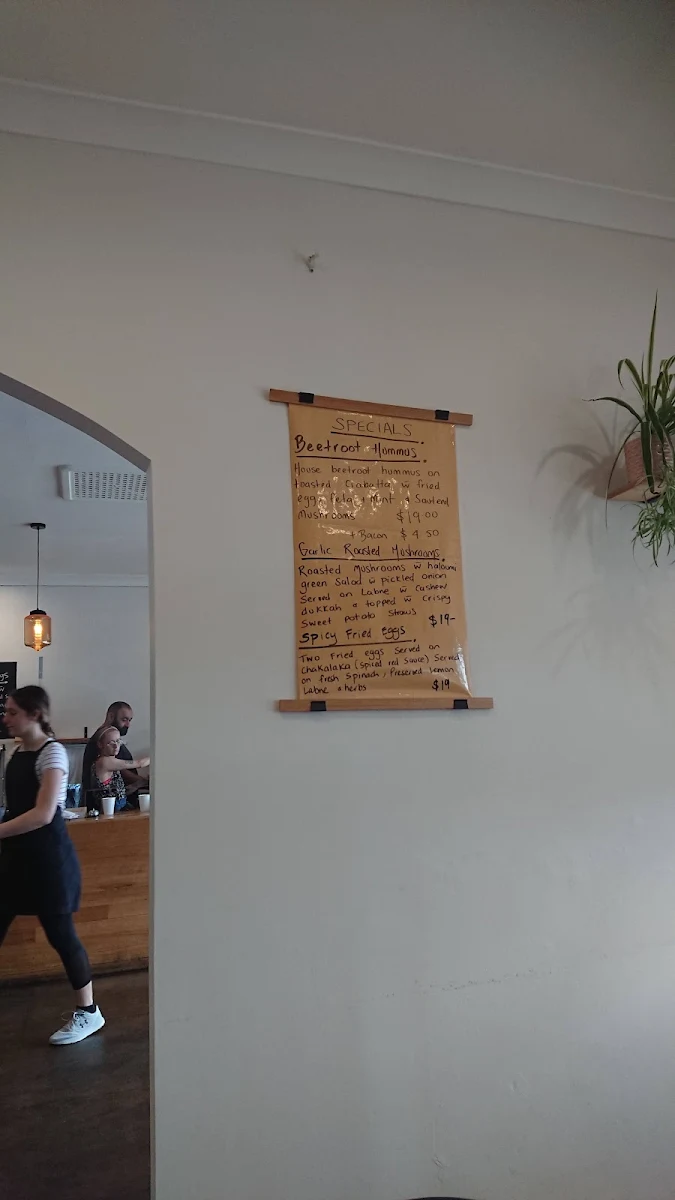 SPECIALS
Beetroot Hummus
House beetroot hummus on
toasted Ciabatta w̄ fried
egg, feta, Mint & Sauteed
Mushrooms $19.00
+ Bacon $4.50
Garlic Roasted Mushrooms
Roasted Mushrooms w̄ haloumi
green Salad w̄ pickled onion
Served on Labne w̄ Cashew
dukkah & topped w̄ Crispy
Sweet potato Straws $19-
Spicy Fried eggs
Two Fried eggs Served on
Chakalaka (spiced red Sauce) Served
on fresh Spinach, Preserved lemon
Labne & herbs $19